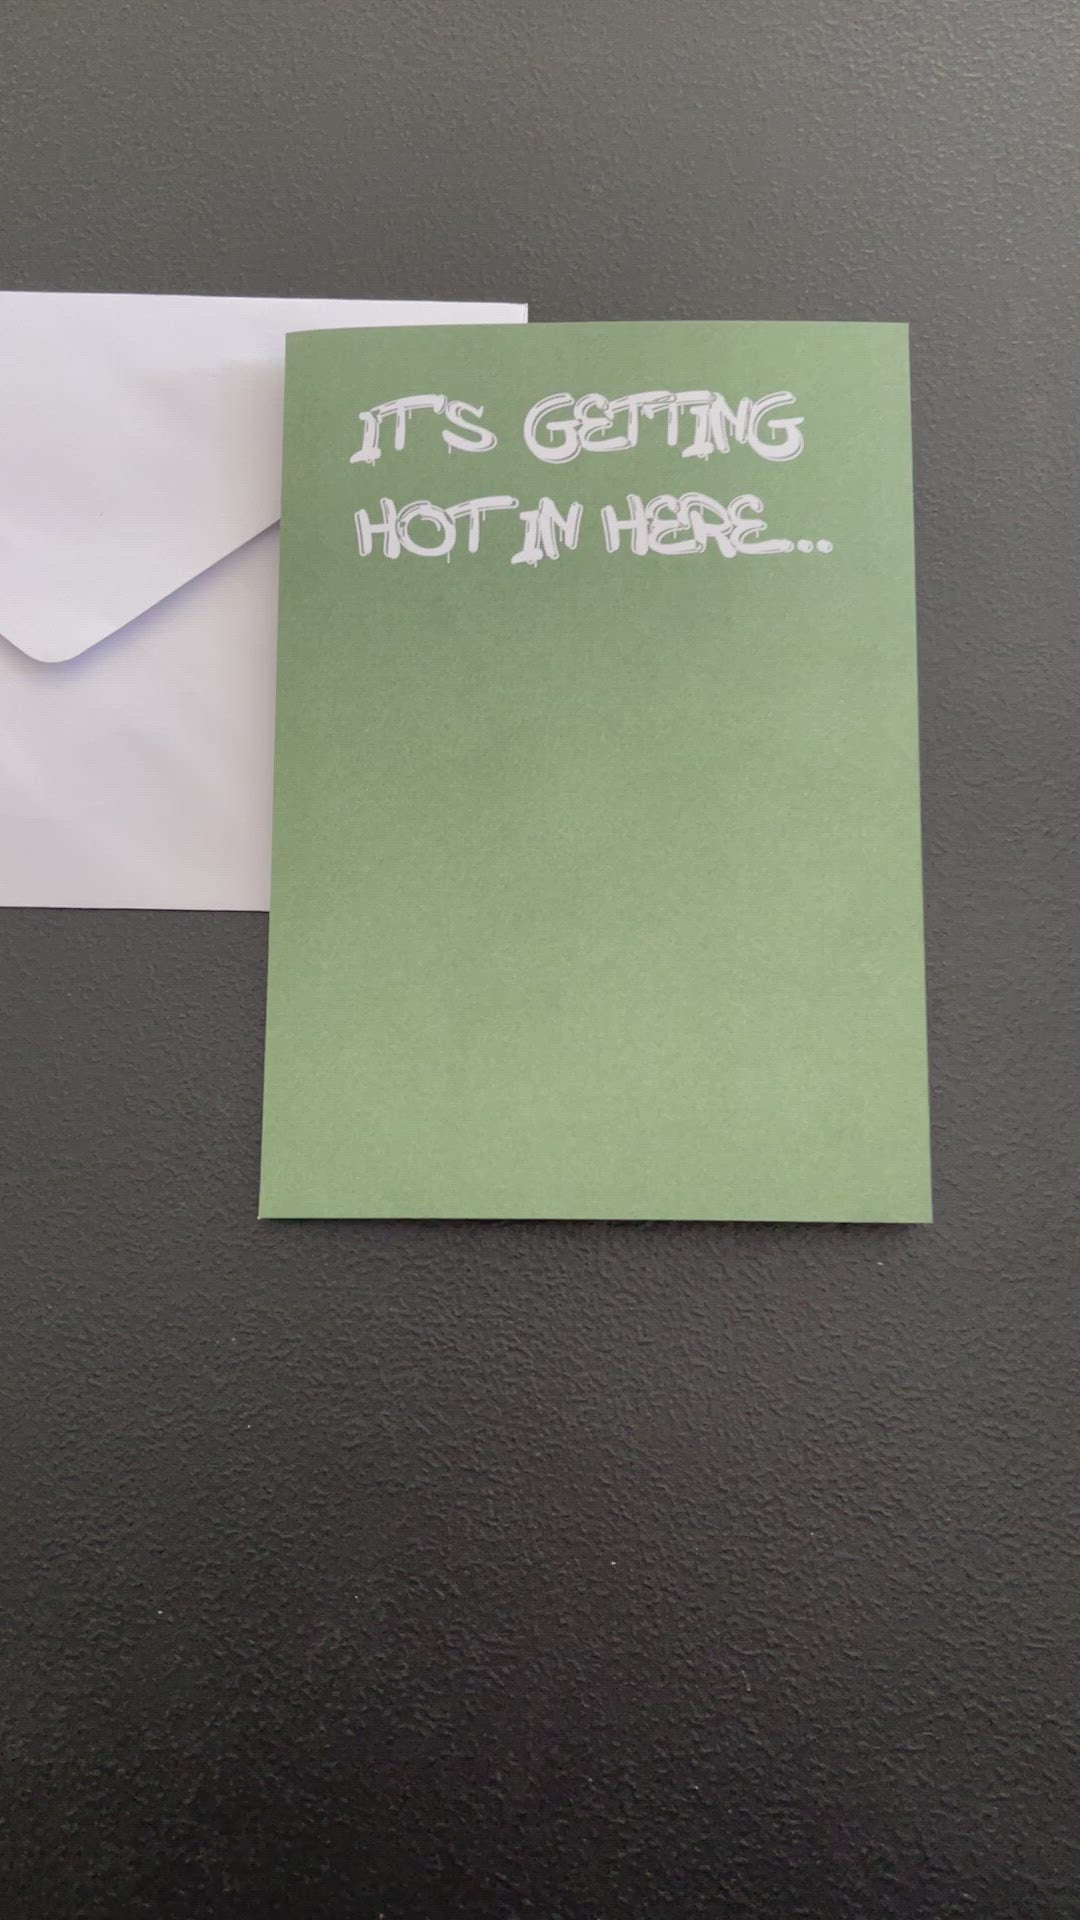 IT'S GETTING
HOT IN HERE...